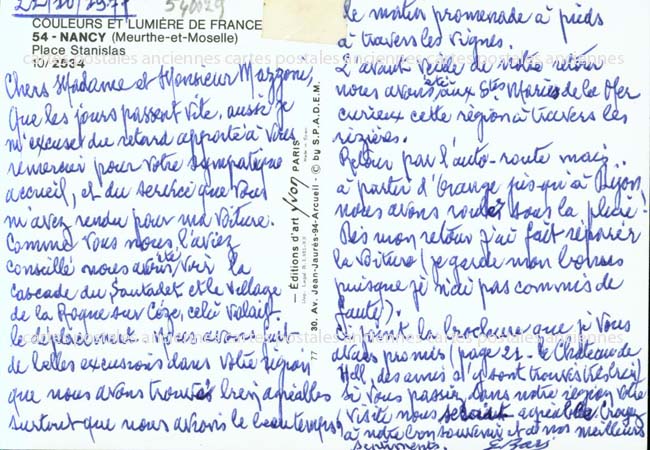 22/10/1977
540029
COULEURS ET LUMIÈRE DE FRANCE
54 - NANCY (Meurthe-et-Moselle)
Place Stanislas
10/2534
Chers Madame et Monsieur Mazzoni,
Que les jours passent vite, aussi je
m'excuse du retard apporté à vous
remercier pour votre sympatique
accueil, et du service que vous
m'avez rendu pour ma voiture.
Comme vous nous l'aviez
conseillé nous avons été voir la
cascade du Sautadet et le village
de la Roque sur Cèze, celà valait
le déplacement. Nous avons fait
de belles excursions dans votre région
que nous avons trouvés bien agréables
surtout que nous avions le beau temps
— Éditions d'art yvon PARIS
30, Av. Jean-Jaurès-94-Arcueil - © by S.P.A.D.E.M.
77
le matin promenade à pieds
à travers les vignes.
L'avant veille de notre retour
nous avons été aux Stes Maries de la Mer
curieux cette région à travers les
rizières.
Retour par l'auto-route mais..
à partir d'Orange jusqu'à Dijon,
nous avons roulé sous la pluie!
Dès mon retour j'ai fait réparer
la voiture (je garde mon bonus
puisque je n'ai pas commis de
faute).
Ci joint la brochure que je vous
avais promis (page 21 - le Château de
des amis s'y sont trouvés très bien)
si vous passiez dans notre région votre
visite nous serait agréable. Croyez
à notre bon souvenir et à nos meilleurs
sentiments.
cartes postales anciennes cartes postales anciennes cartes postales anciennes